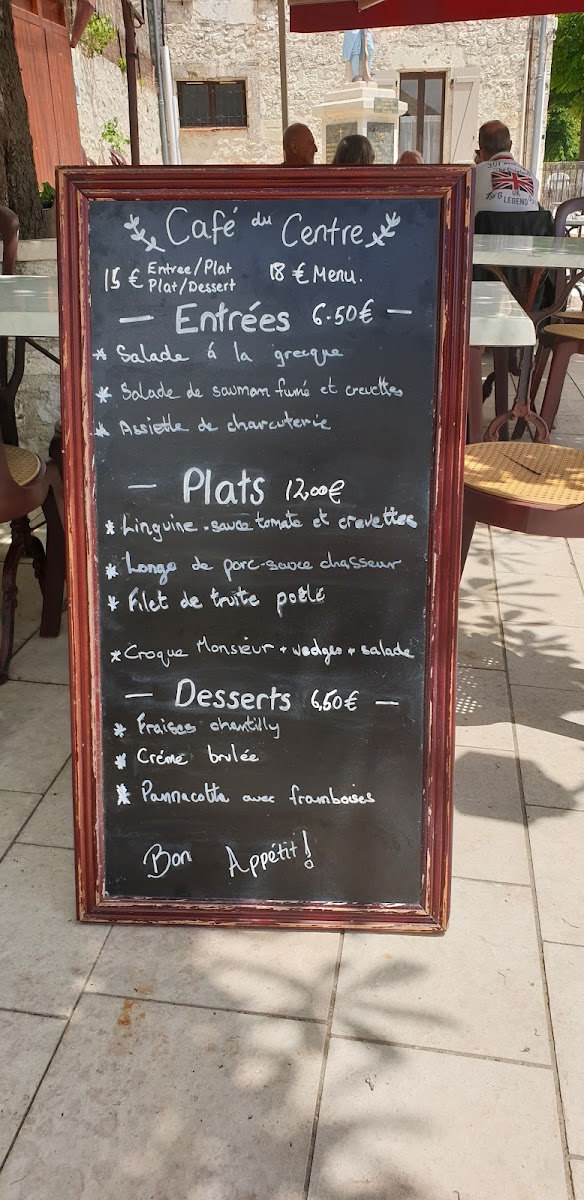 Café du Centre
15 € Entree/Plat
Plat/Dessert
18 € Menu.
— Entrées 6.50€ —
* Salade á la grecque
* Salade de saumon fumé et crevettes
* Assiette de charcuterie
— Plats 12,00€
* Linguine - sauce tomate et cravettes
* Longe de porc-sauce chasseur
* Filet de truite poêlé
* Croque Monsieur + wedges + salade
— Desserts 6,50€ —
* Fraises chantilly
* Créme brulée
* Pannacotta avec framboises
Bon Appétit!
LEGEND